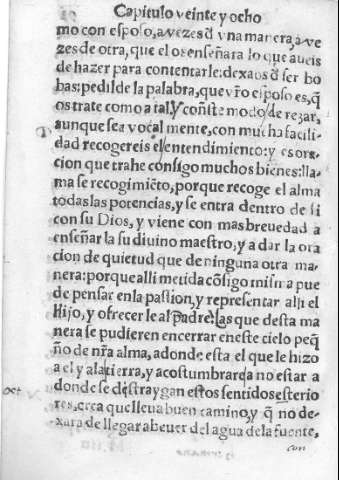 Capitulo veinte y ocho
mo con esposo, a vezes d̃ vna manera, a ve
zes de otra, que el os enseñara lo que aueis
de hazer para contentarle: dexaos d̃ ser bo
bas: pedilde la palabra, que vr̃o esposo es, q̃
os trate como a tal. y cõ este modo de rezar,
aunque sea vocal mente, con mucha facili-
dad recogereis el entendimiento: y es ora-
cion que trahe consigo muchos bienes: lla-
ma se recogimiẽto, porque recoge el alma
todas las potencias, y se entra dentro de si
con su Dios, y viene con mas breuedad a
enseñar la su diuino maestro, y a dar la ora
cion de quietud que de ninguna otra ma-
nera: porque alli metida cõsigo misma pue
de pensar en la passion, y representar alli el
Hijo, y ofrecer le al padre. Las que desta ma
nera se pudieren encerrar en este cielo peq̃
ño de nr̃a alma, adonde esta el que le hizo
a el y a la tierra, y acostumbrar a no estar a
donde se destraygan estos sentidos esterio
res, crea que lleua buen camino, y q̃ no de-
xara de llegar a beuer del agua de la fuente,
con